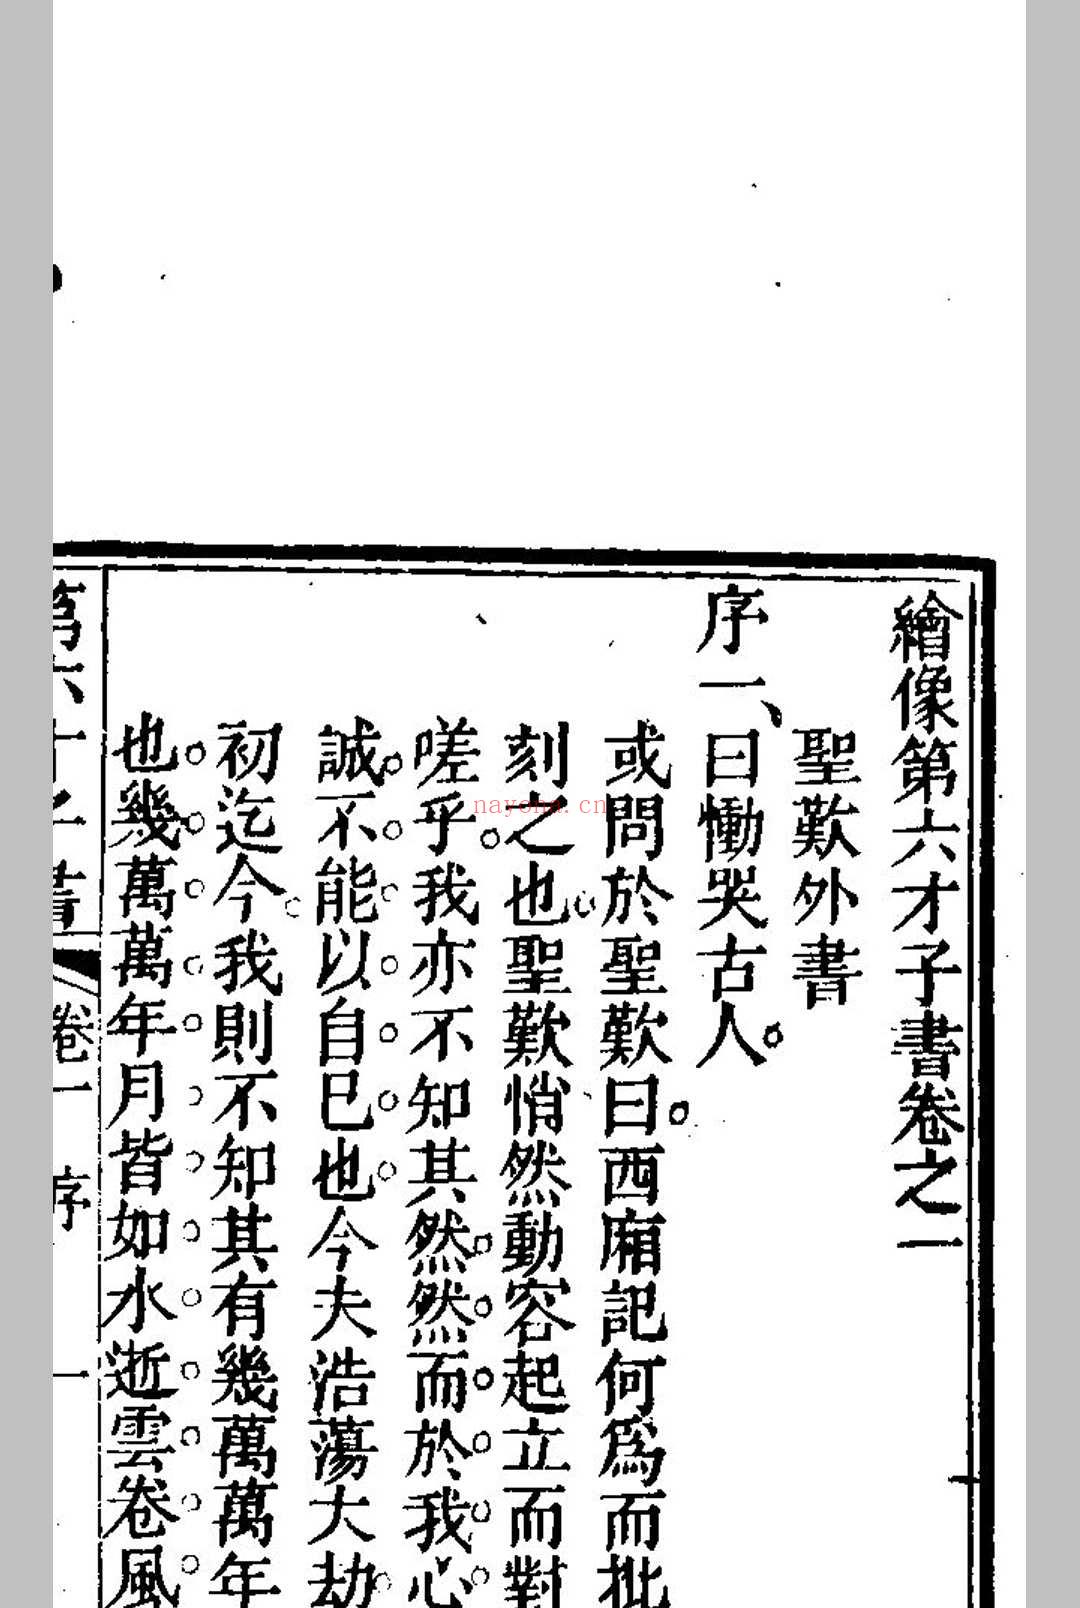 繪像第六才子書卷之一
聖歎外書
序一、曰慟哭古人。
或問於聖歎曰。西廂記何爲而批
刻之也聖歎悄然動容起立而對
嗟乎。我亦不知其然然而於我心
誠不能以自已也今夫浩蕩大劫
初迄今我則不知其有幾萬萬年
也幾萬萬年月皆如水逝雲卷風
第六才子書 卷一 序 一
nayona.cn